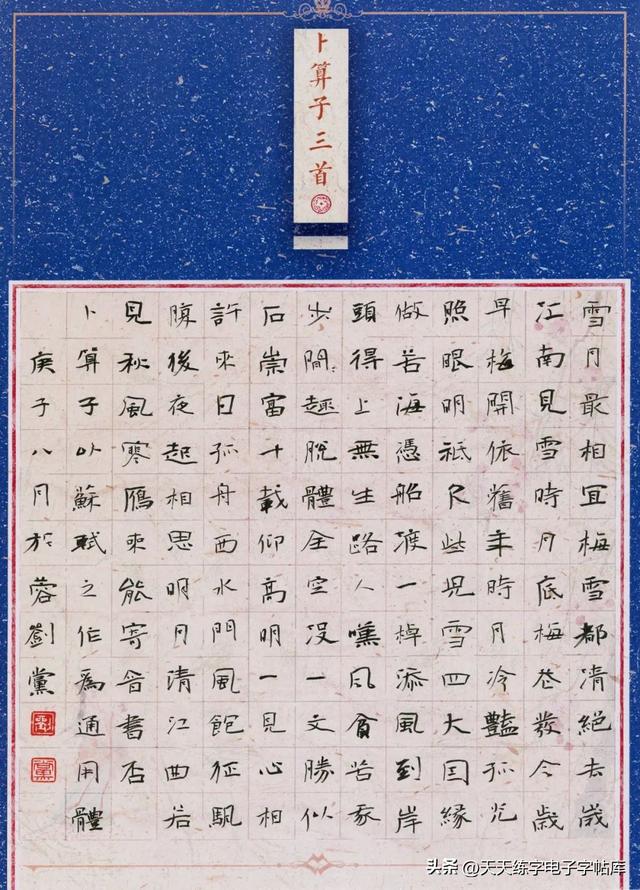 卜算子三首
雪月最相宜梅雪都清絕去歲
江南見雪時月底梅花發今歲
早梅開依舊年時月冷豔孤光
照眼明祇欠些兒雪四大因緣
做苦海憑船渡一棹添風到岸
頭得上無生路人嘆貧苦
步間趣脫體全空沒一文勝似
石崇富十載仰高明一見心相
許來日孤舟西水門風飽征帆
腹後夜起相思明月清江曲若
見秋風寒雁來能寄音書否
卜算子以蘇軾之作為通用體
庚子八月於蓉劉黨
劉
黨
头条 @天天练字电子字帖库